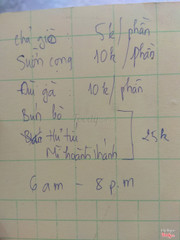 chả giò 5k/phần
Sườn cọng 10k/phần
Đùi gà 10k/phần
Bún bò
thứ tư
Mì hoành thánh 25k
6 am - 8 p.m